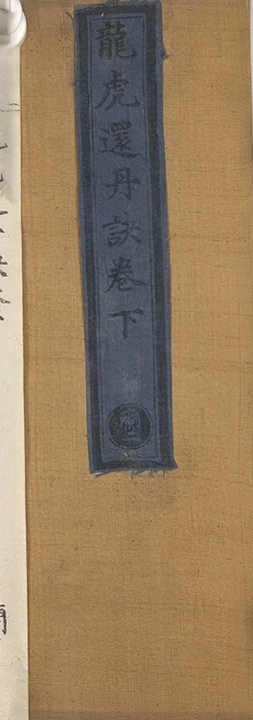 龍虎還丹訣卷下